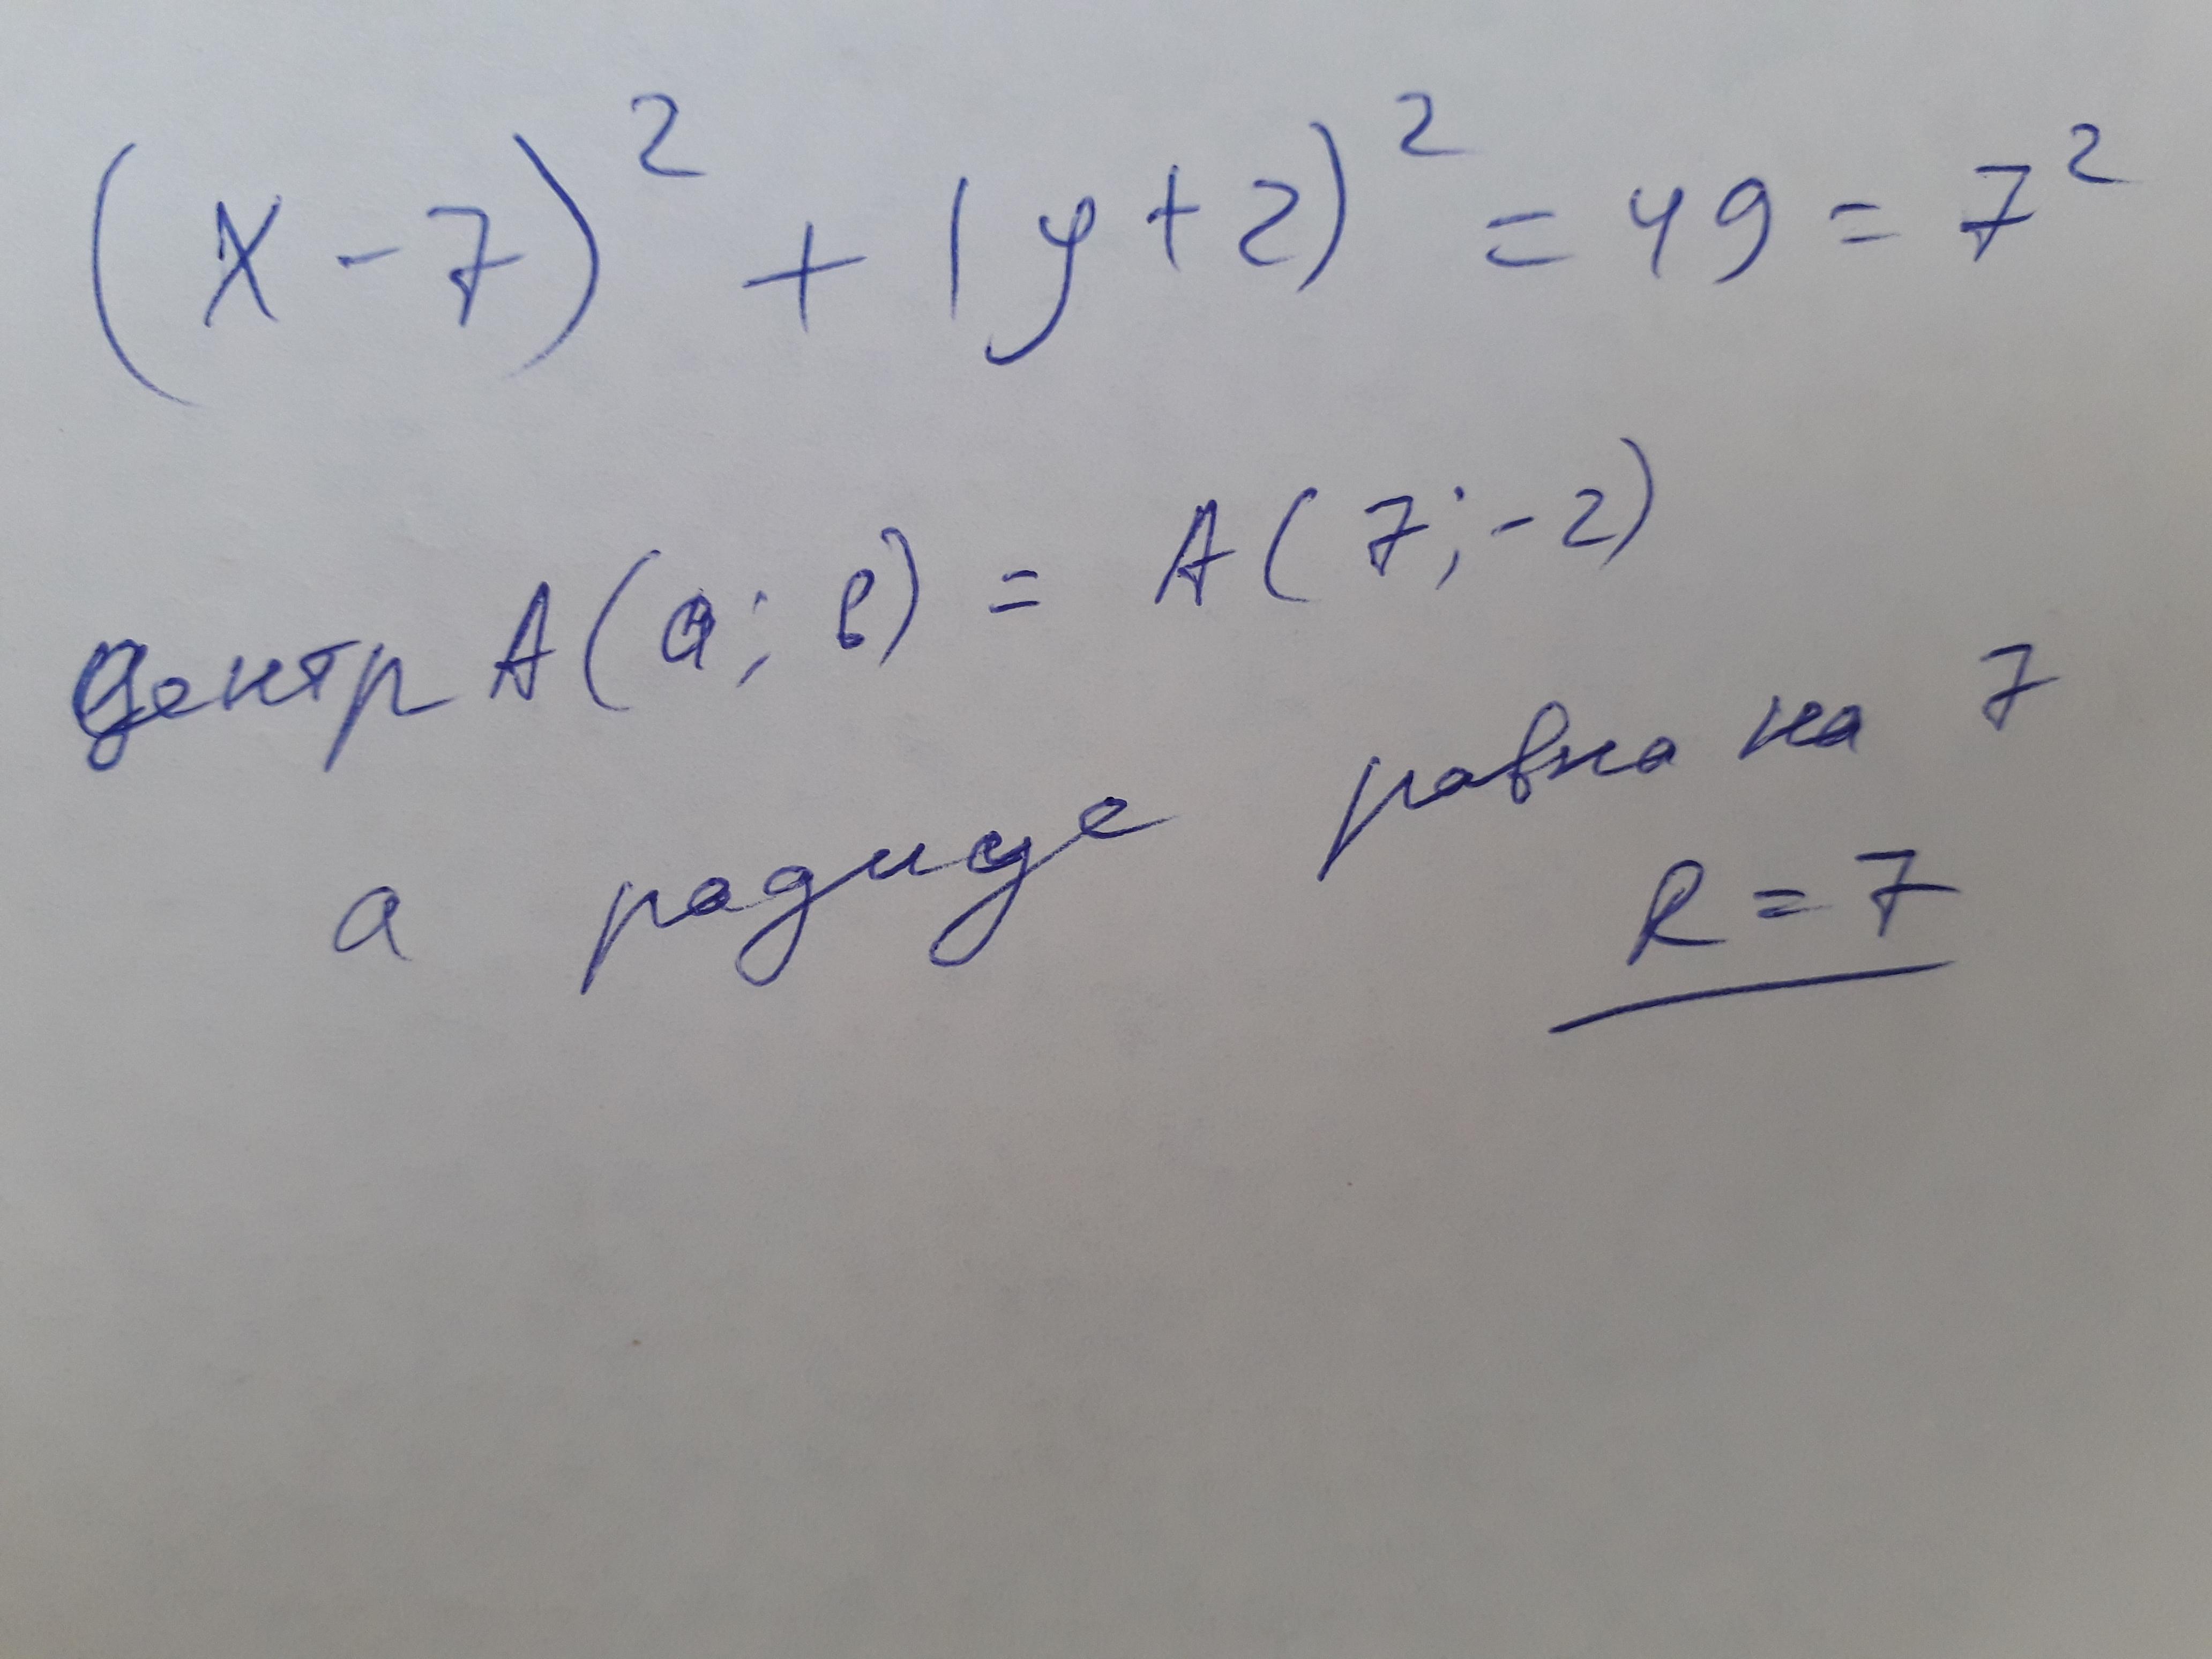 (x-7)² + (y+2)² = 49 = 7²
центр A(a; в) = A(7; -2)
а радиус равна на 7
R = 7